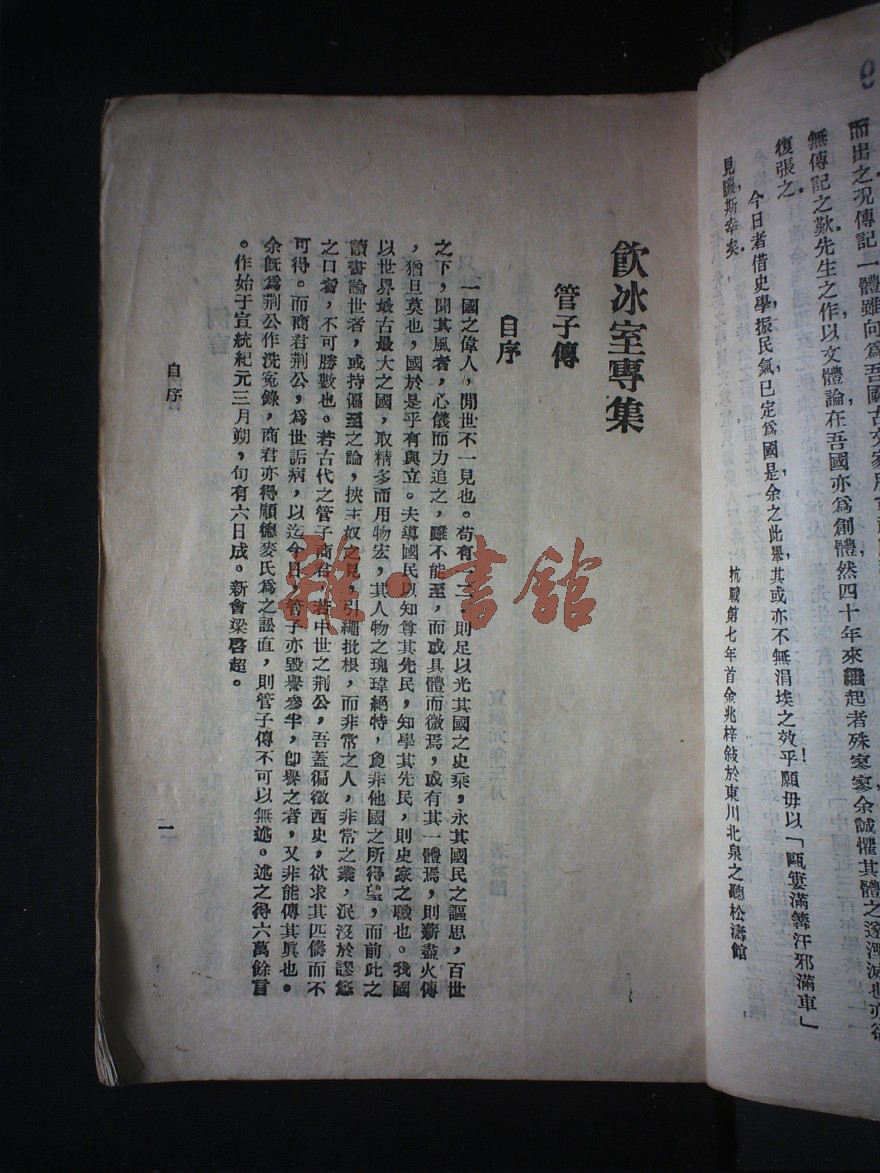 而出之。況傳記一體雖向爲吾國古文家所
無傳記之歎。先生之作以文體論在吾國亦爲創體然四十年來繼起者殊寥寥余誠懼其體之遂湮滅也亦欲
復張之。
今日者借史學振民氣已定爲國是余之此舉，其或亦不無涓埃之效乎！願毋以「甌窶滿篝汙邪滿車」
見譏，斯幸矣。
抗戰第七年首金兆梓敍於東川北泉之聽松濤館
飲冰室專集
管子傳
自序
一國之偉人，間世不一見也。苟有一二，則足以光其國之史乘，永其國民之謳思，百世
之下，聞其風者，心儀而力追之，雖不能至，而或具體而微焉，或有其一體焉，則薪盡火傳
，猶旦莫也，國於是乎有與立。夫導國民以知尊其先民，知學其先民，則史家之職也。我國
以世界最古最大之國，取精多而用物宏，其人物之瑰瑋絕特，夐非他國之所得望，而前此之
讀書論世者，或持偏至之論，挾主奴之見，引繩批根，而非常之人，非常之業，泯沒於謬悠
之口者，不可勝數也。若古代之管子商君，若中世之荆公，吾蓋徧徵西史，欲求其匹儔而不
可得。而商君荆公，爲世詬病，以迄今日，管子亦毀譽參半，卽譽之者，又非能傳其眞也。
余旣爲荆公作洗冤錄，商君亦得順德麥氏爲之訟直，則管子傳不可以無述。述之得六萬餘言
。作始于宣統紀元三月朔，旬有六日成。新會梁啓超。
自序
一
雜·書館